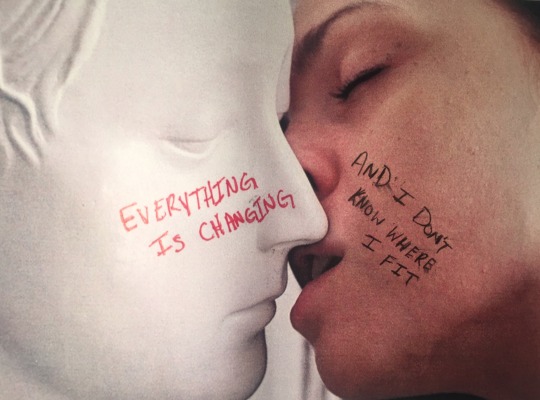 EVERYTHING
IS CHANGING
AND I DON'T
KNOW WHERE
I FIT